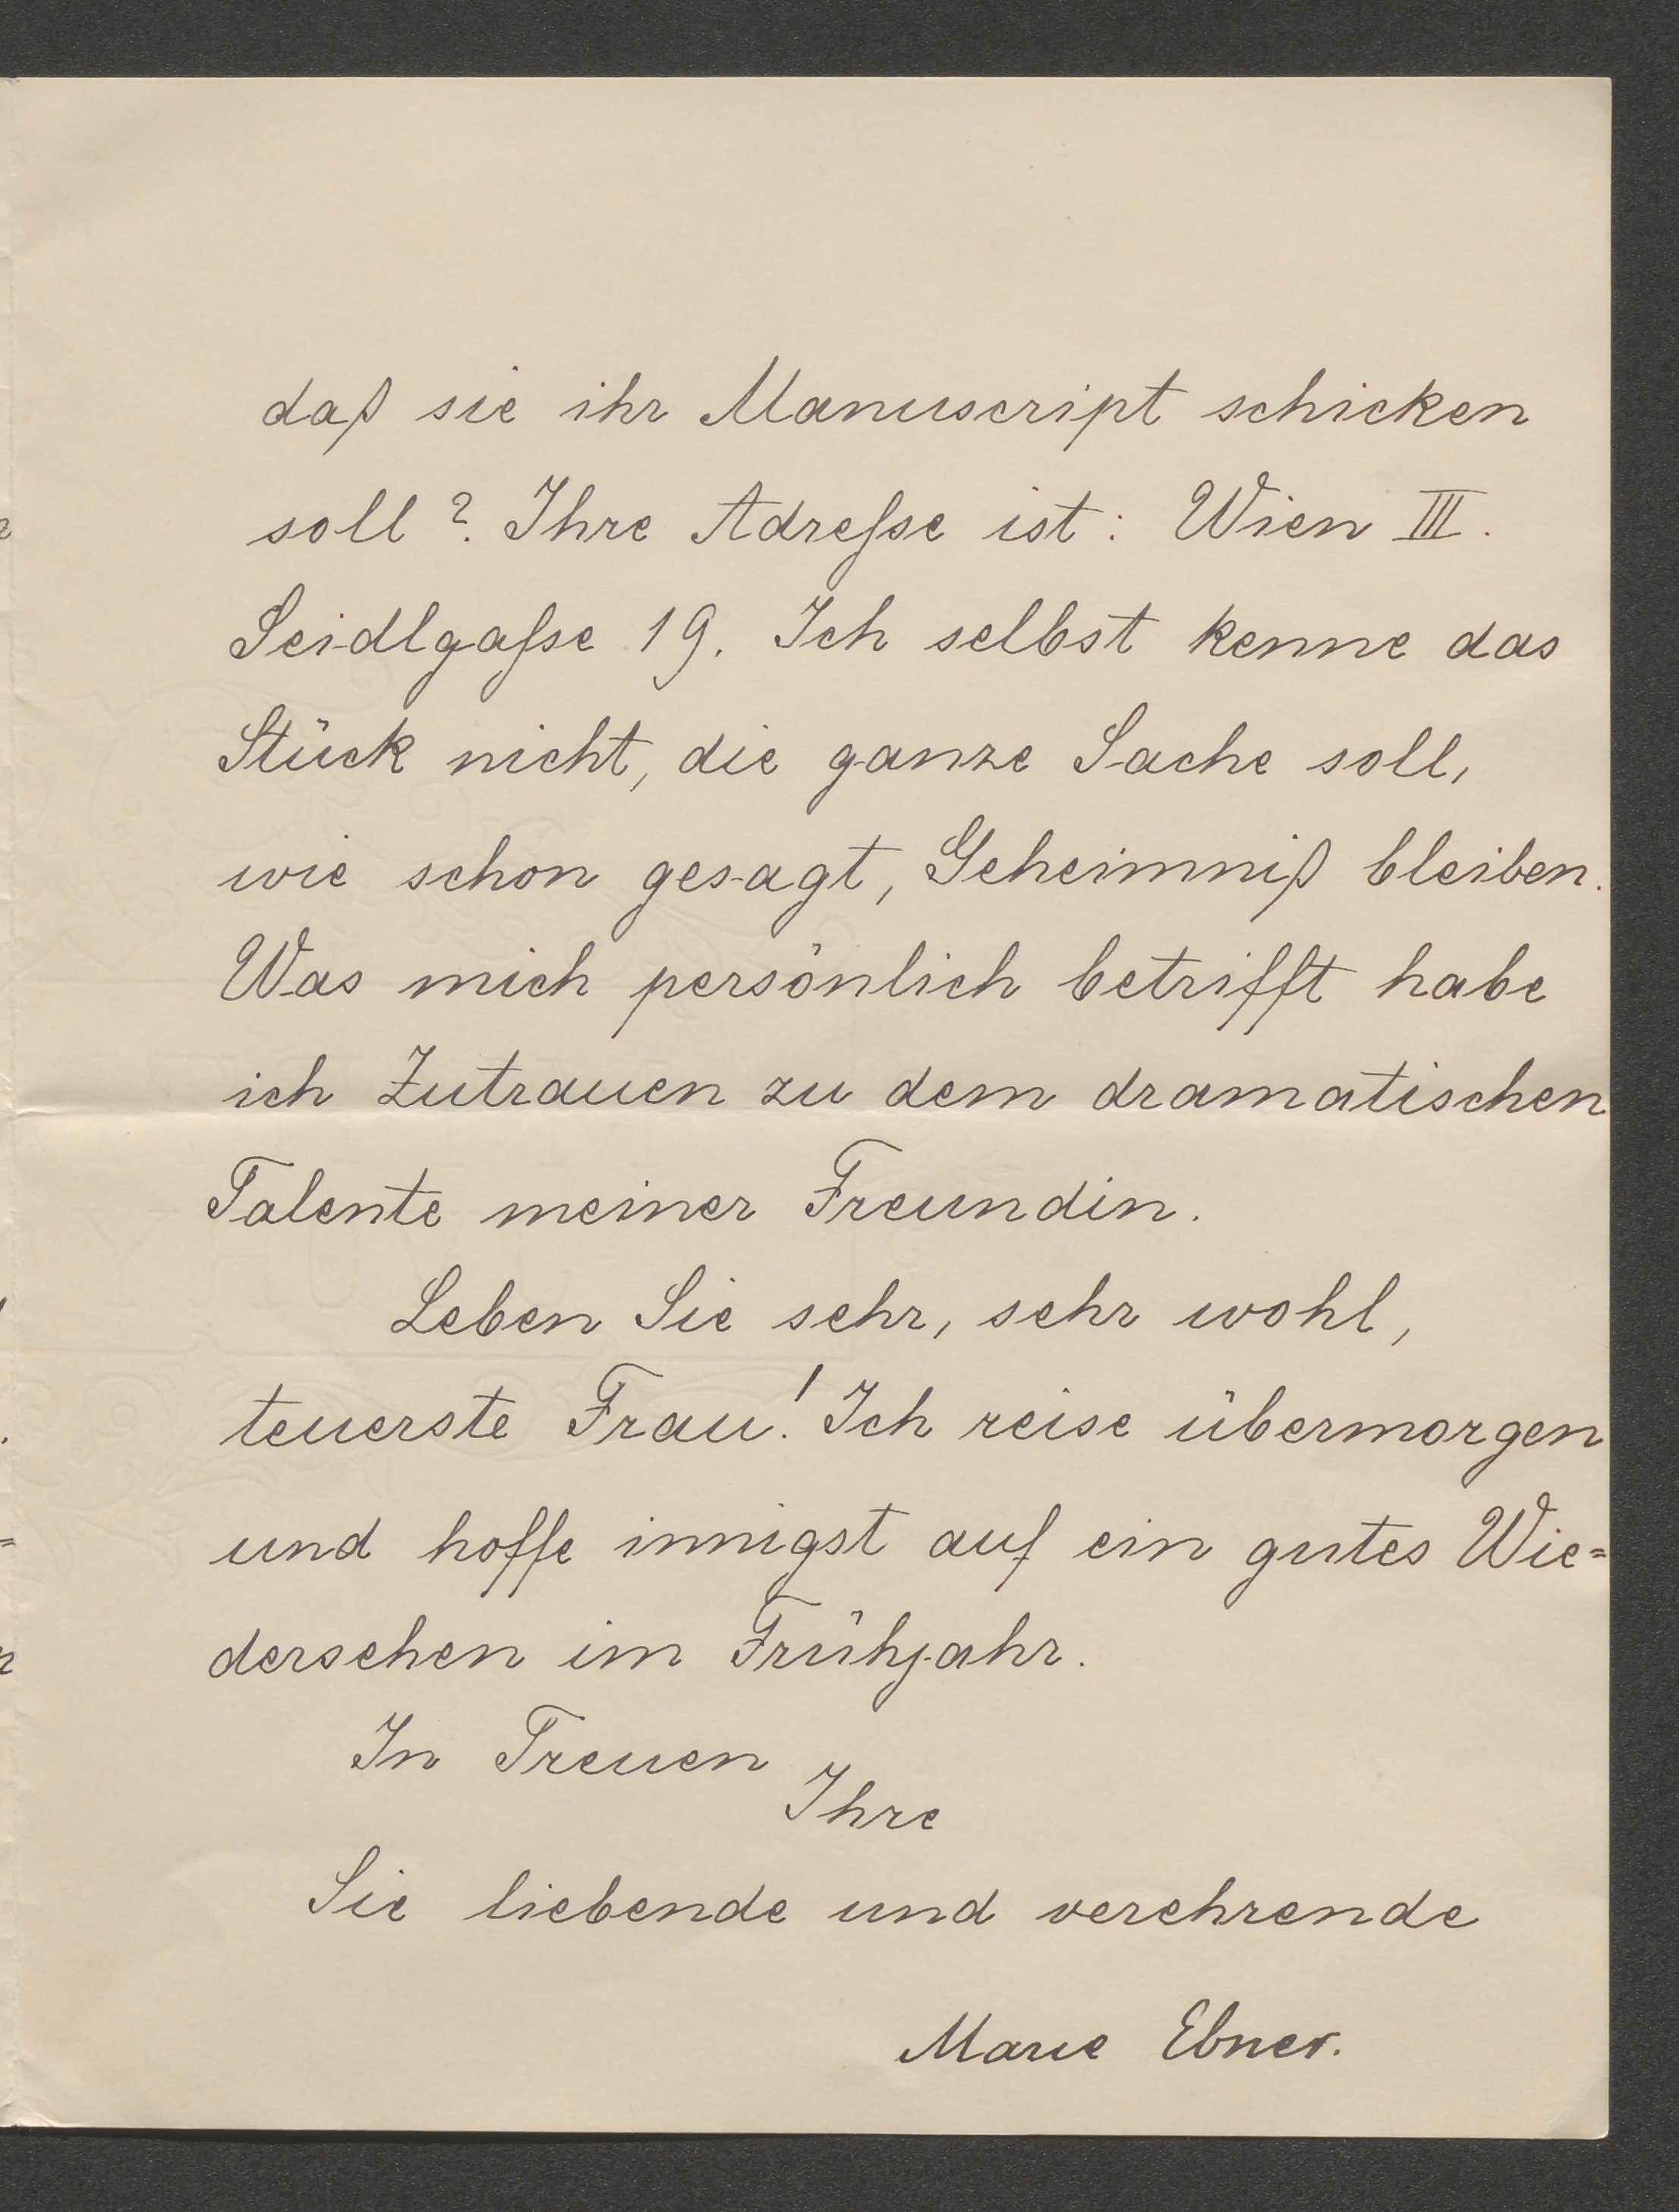 daß sie ihr Manuscript schicken
soll? Ihre Adreſse ist: Wien III.
Seidlgaſse 19. Ich selbst kenne das
Stück nicht, die ganze Sache soll,
wie schon gesagt, Geheimniß bleiben.
Was mich persönlich betrifft habe
ich Zutrauen zu dem dramatischen
Talente meiner Freundin.
Leben Sie sehr, sehr wohl,
teuerste Frau! Ich reise übermorgen
und hoffe innigst auf ein gutes Wie=
dersehen im Frühjahr.
In Treuen
Ihre
Sie liebende und verehrende
Marie Ebner.